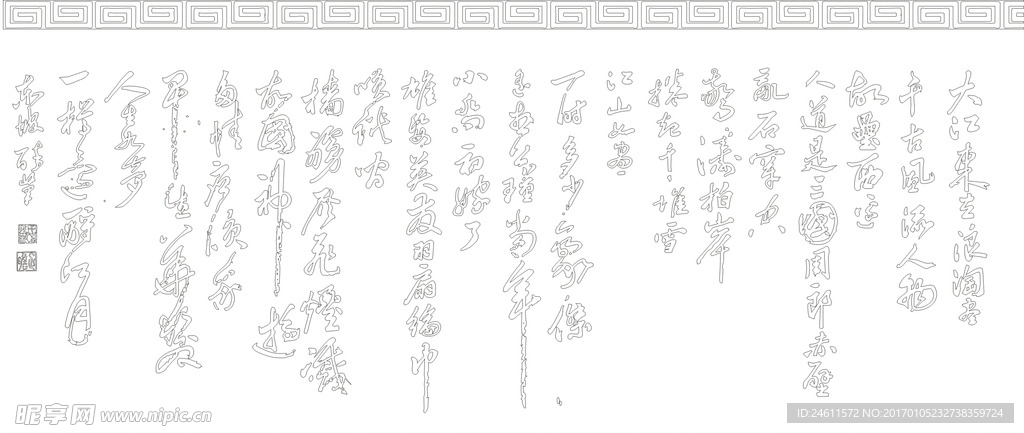 大江東去浪淘盡
千古風流人物
故壘西邊
人道是三國周郎赤壁
亂石穿空
驚濤拍岸
捲起千堆雪
江山如畫
一時多少豪傑
遙想公瑾當年
小喬初嫁了
雄姿英發羽扇綸巾
檣櫓灰飛煙
故國神遊
多情應笑我
早生華髮
人生如夢
一樽還酹江月
東坡 醉筆
昵享网 www.nipic.cn
ID:24611572 NO:20170105232738359724